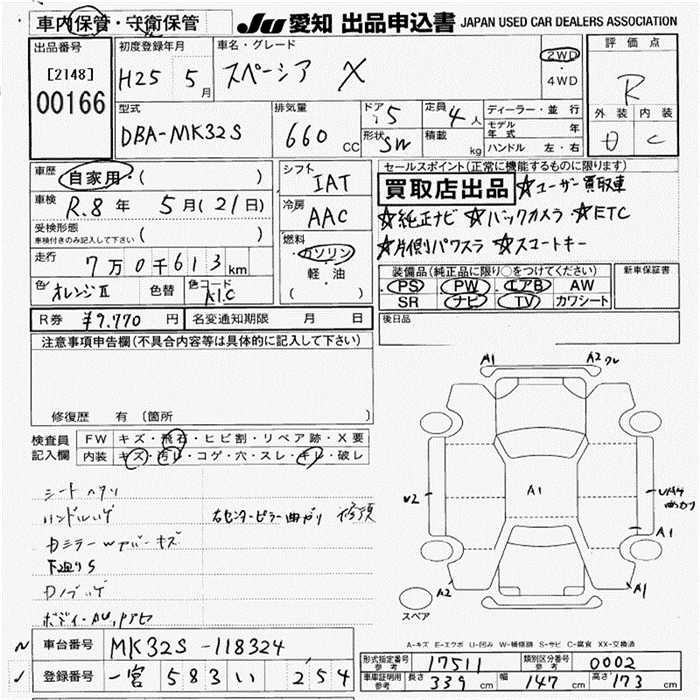 車内保管・守衛保管
JU 愛知 出品申込書 JAPAN USED CAR DEALERS ASSOCIATION
出品番号
[2148]
00166
初度登録年月
H25 5月
車名・グレード
スペーシア X
2WD
・
4WD
評価点
R
外装 内装
D C
型式
DBA-MK32S
排気量
660 cc
ドア
5
形状 SW
定員 4人
積載 kg
ディーラー・並行
モデル年式 年
ハンドル 左・右
車歴 自家用・( )
車検 R.8年 5月(21日)
受検形態
車検付きのみ記入して下さい ( )
走行 7万0千613km
色 オレンジII 色替 色コード A1C
シフト IAT
冷房 AAC
燃料
ガソリン
軽・油
( )
セールスポイント(正常に機能するものに限ります)
買取店出品 ☆ユーザー買取車
☆純正ナビ ☆バックカメラ ☆ETC
☆片側パワスラ ☆スマートキー
装備品(純正品に限り○をつけてください)
PS PW エアB AW
SR ナビ TV カワシート
新車保証書
後日品
R券 ¥9,770円 名変通知期限 月 日
注意事項申告欄(不具合内容等は具体的に記入して下さい)
修復歴 有 (箇所 )
検査員記入欄
FW キズ・飛石・ヒビ割・リペア跡・X要
内装 キズ・汚レ・コゲ・穴・スレ・キレ・破レ
シートヘタリ
ハンドルハゲ 右センターピラー曲がり 修預
カミラーwアバーキズ
下廻りS
A1
A2
A1
U2
A1
A2
A1
スペア
A-キズ E-エクボ U-凹み W-補修跡 S-サビ C-腐食 XX-交換済
車台番号 MK32S-118324
登録番号 一宮 583 い 254
形式指定番号 参考 17511 類別区分番号 参考 0002
車庫証明用 参考 長さ 339cm 幅 147cm 高さ 173cm